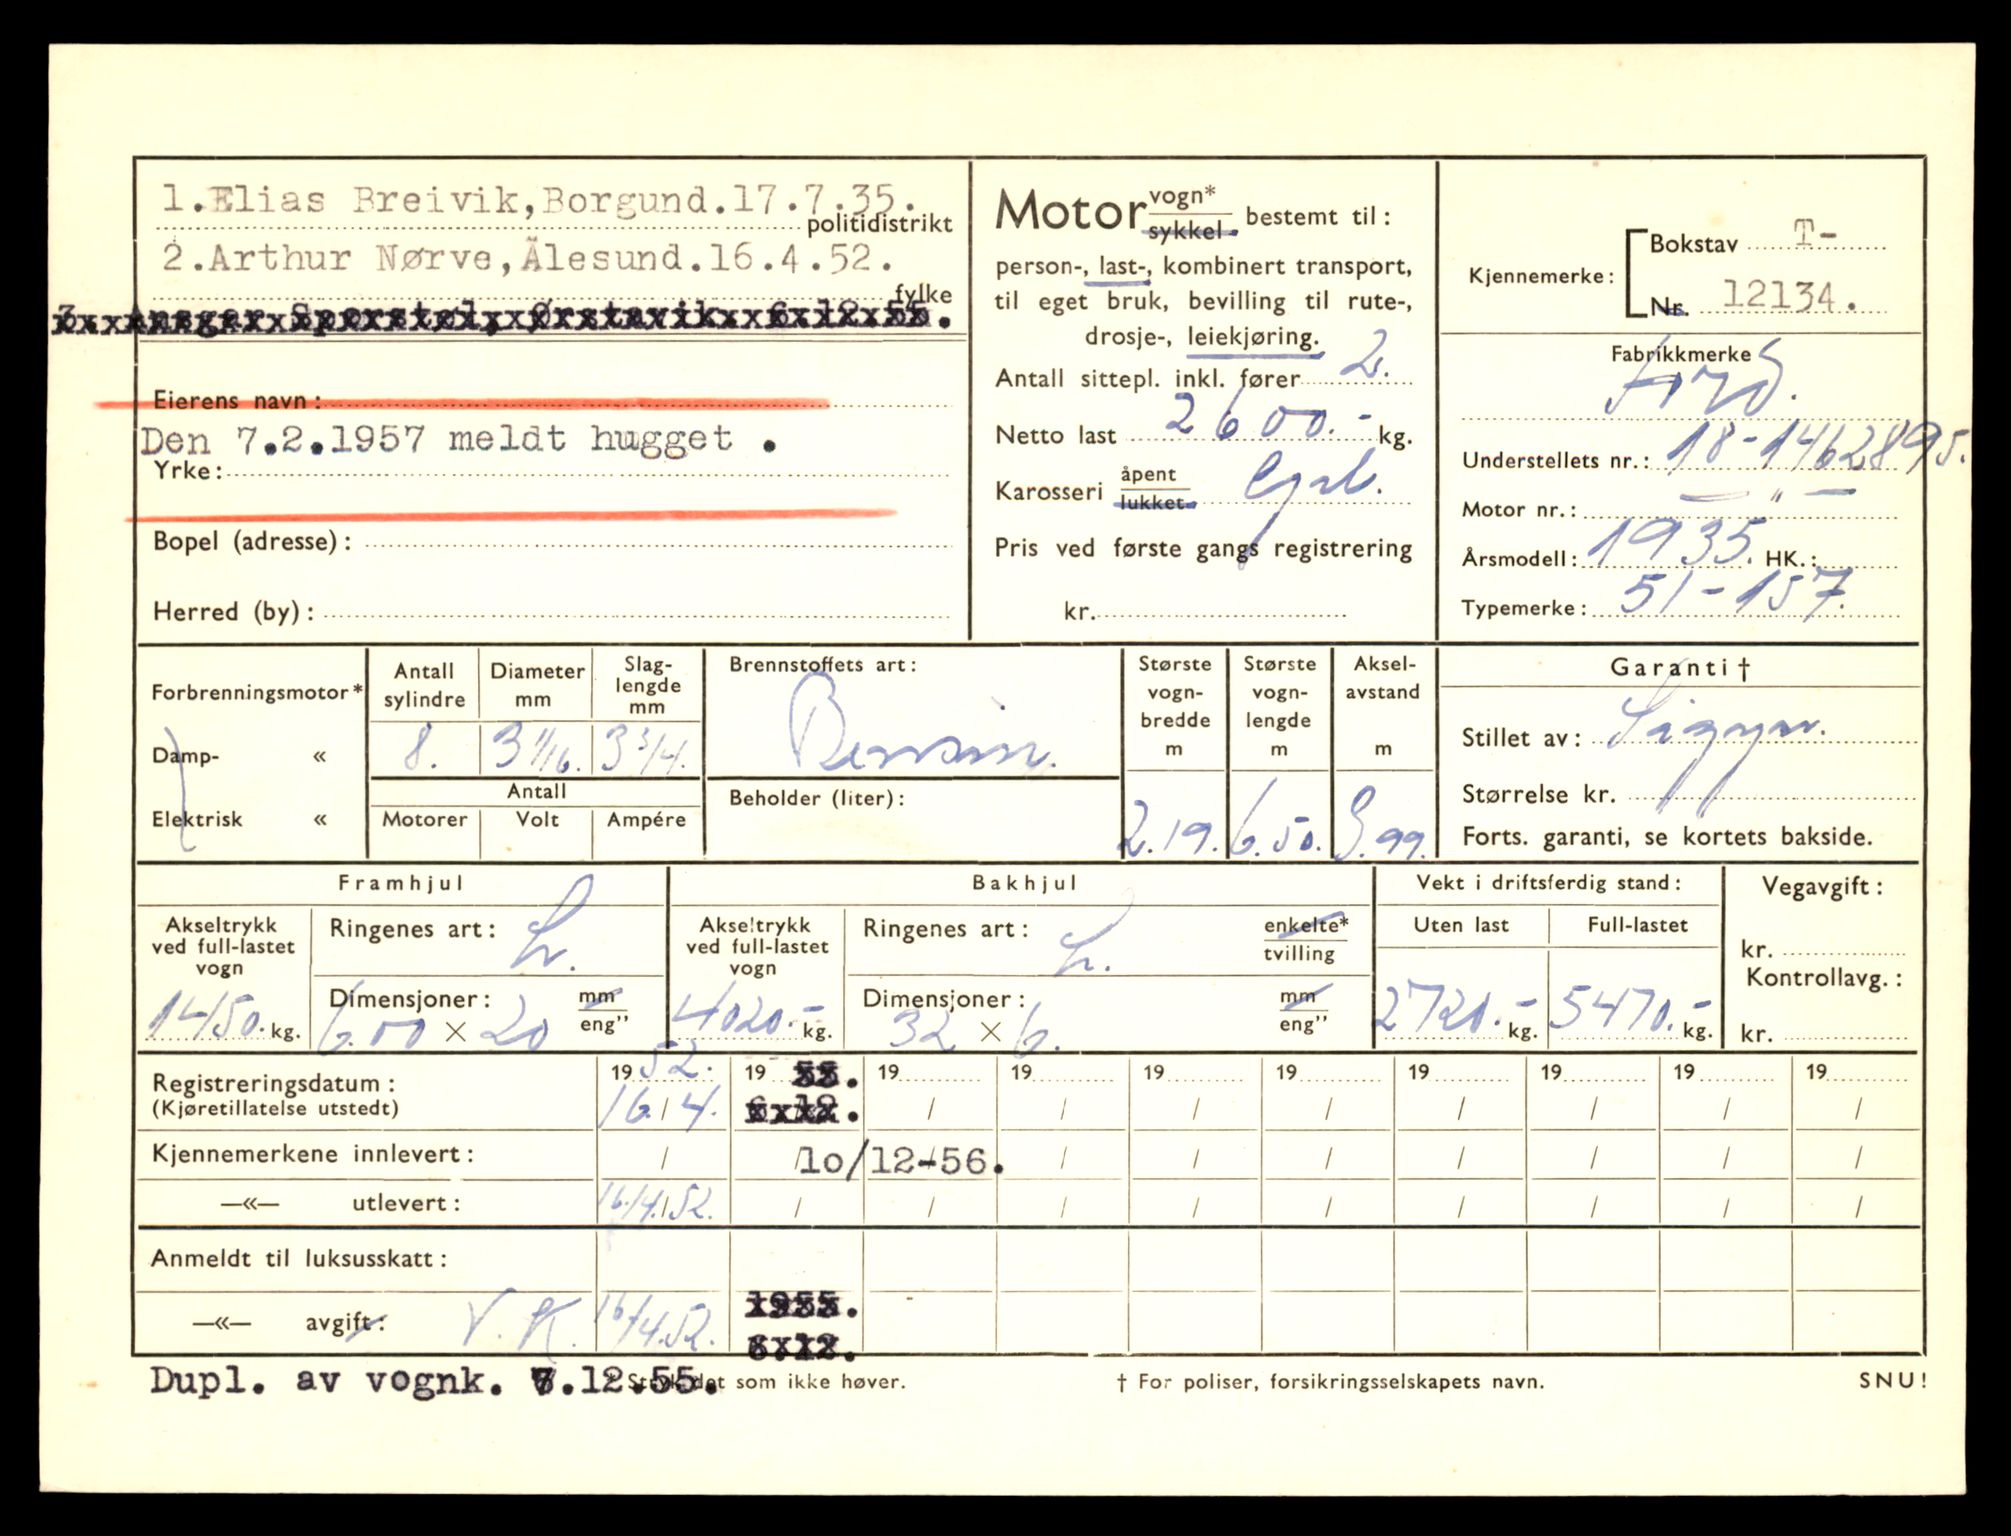 1.Elias Breivik,Borgund.17.7.35.
politidistrikt
2.Arthur Nørve,Ålesund.16.4.52.
fylke
3. Ansgar Sporstøl, Ørstavik. 6.12.55.
Eierens navn:
Den 7.2.1957 meldt hugget .
Yrke:
Bopel (adresse):
Herred (by):
Motor vogn* sykkel bestemt til:
person-, last-, kombinert transport,
til eget bruk, bevilling til rute-,
drosje-, leiekjøring.
Antall sittepl. inkl. fører 2.
Netto last 2600.- kg.
Karosseri åpent lukket
Pris ved første gangs registrering
kr.
Kjennemerke: Bokstav T-
Nr. 12134.
Fabrikkmerke
Ford.
Understellets nr.: 18-1462895.
Motor nr.: — " —
Årsmodell: 1935. HK.:
Typemerke: 51-157.
Forbrenningsmotor*
Damp- «
Elektrisk «
Antall sylindre
Diameter mm
Slaglengde mm
8. 3 11/16. 3 3/4.
Antall
Motorer Volt Ampére
Brennstoffets art:
Bensin.
Beholder (liter):
Største vognbredde m
2.19.
Største vognlengde m
6.50.
Akselavstand m
3.99.
Garanti †
Stillet av: Sigyn.
Størrelse kr.
Forts. garanti, se kortets bakside.
Framhjul
Akseltrykk ved full-lastet vogn
1450. kg.
Ringenes art: L.
Dimensjoner: mm eng"
6.00 × 20
Bakhjul
Akseltrykk ved full-lastet vogn
4020.- kg.
Ringenes art: L. enkelte* tvilling
Dimensjoner: mm eng"
32 × 6.
Vekt i driftsferdig stand:
Uten last Full-lastet
2720.- kg. 5470.- kg.
Vegavgift:
kr.
Kontrollavg.:
kr.
Registreringsdatum: 19 52. 19 55. 19 19 19 19 19 19 19 19
(Kjøretillatelse utstedt) 16/4. 6.12. / / / / / / / /
Kjennemerkene innlevert: / / 10/12-56. / / / / / / /
—«— utlevert: 16/4.52. / / / / / / / / /
Anmeldt til luksusskatt:
—«— avgift: V.K. 16/4.52. 1955.
6.12.
Dupl. av vognk. 7.12.55.
* Stryk det som ikke høver.
† For poliser, forsikringsselskapets navn.
SNU!